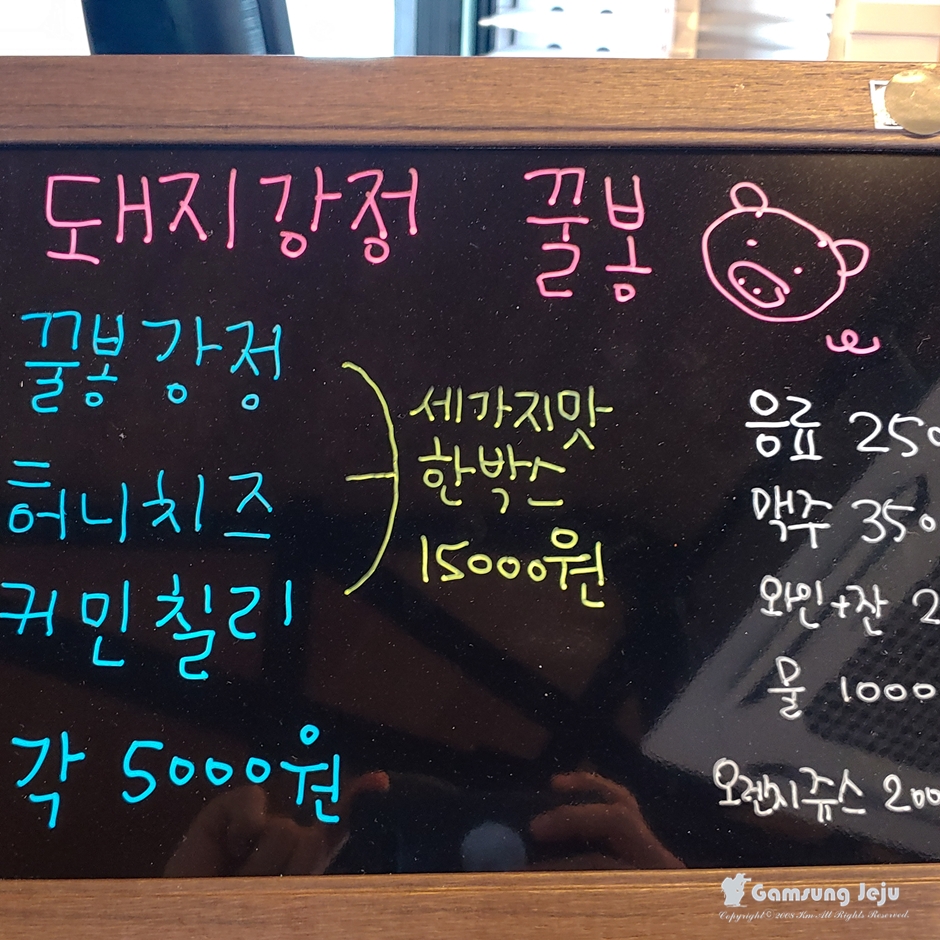 돼지강정 꿀봉
꿀봉강정
허니치즈
커민칠리
각 5000원
세가지맛
한박스
15000원
음료 250
맥주 350
와인+잔 2
물 1000
오렌지쥬스 200
Gamsung Jeju
Copyright © 2008 Km All Rights Reserved.